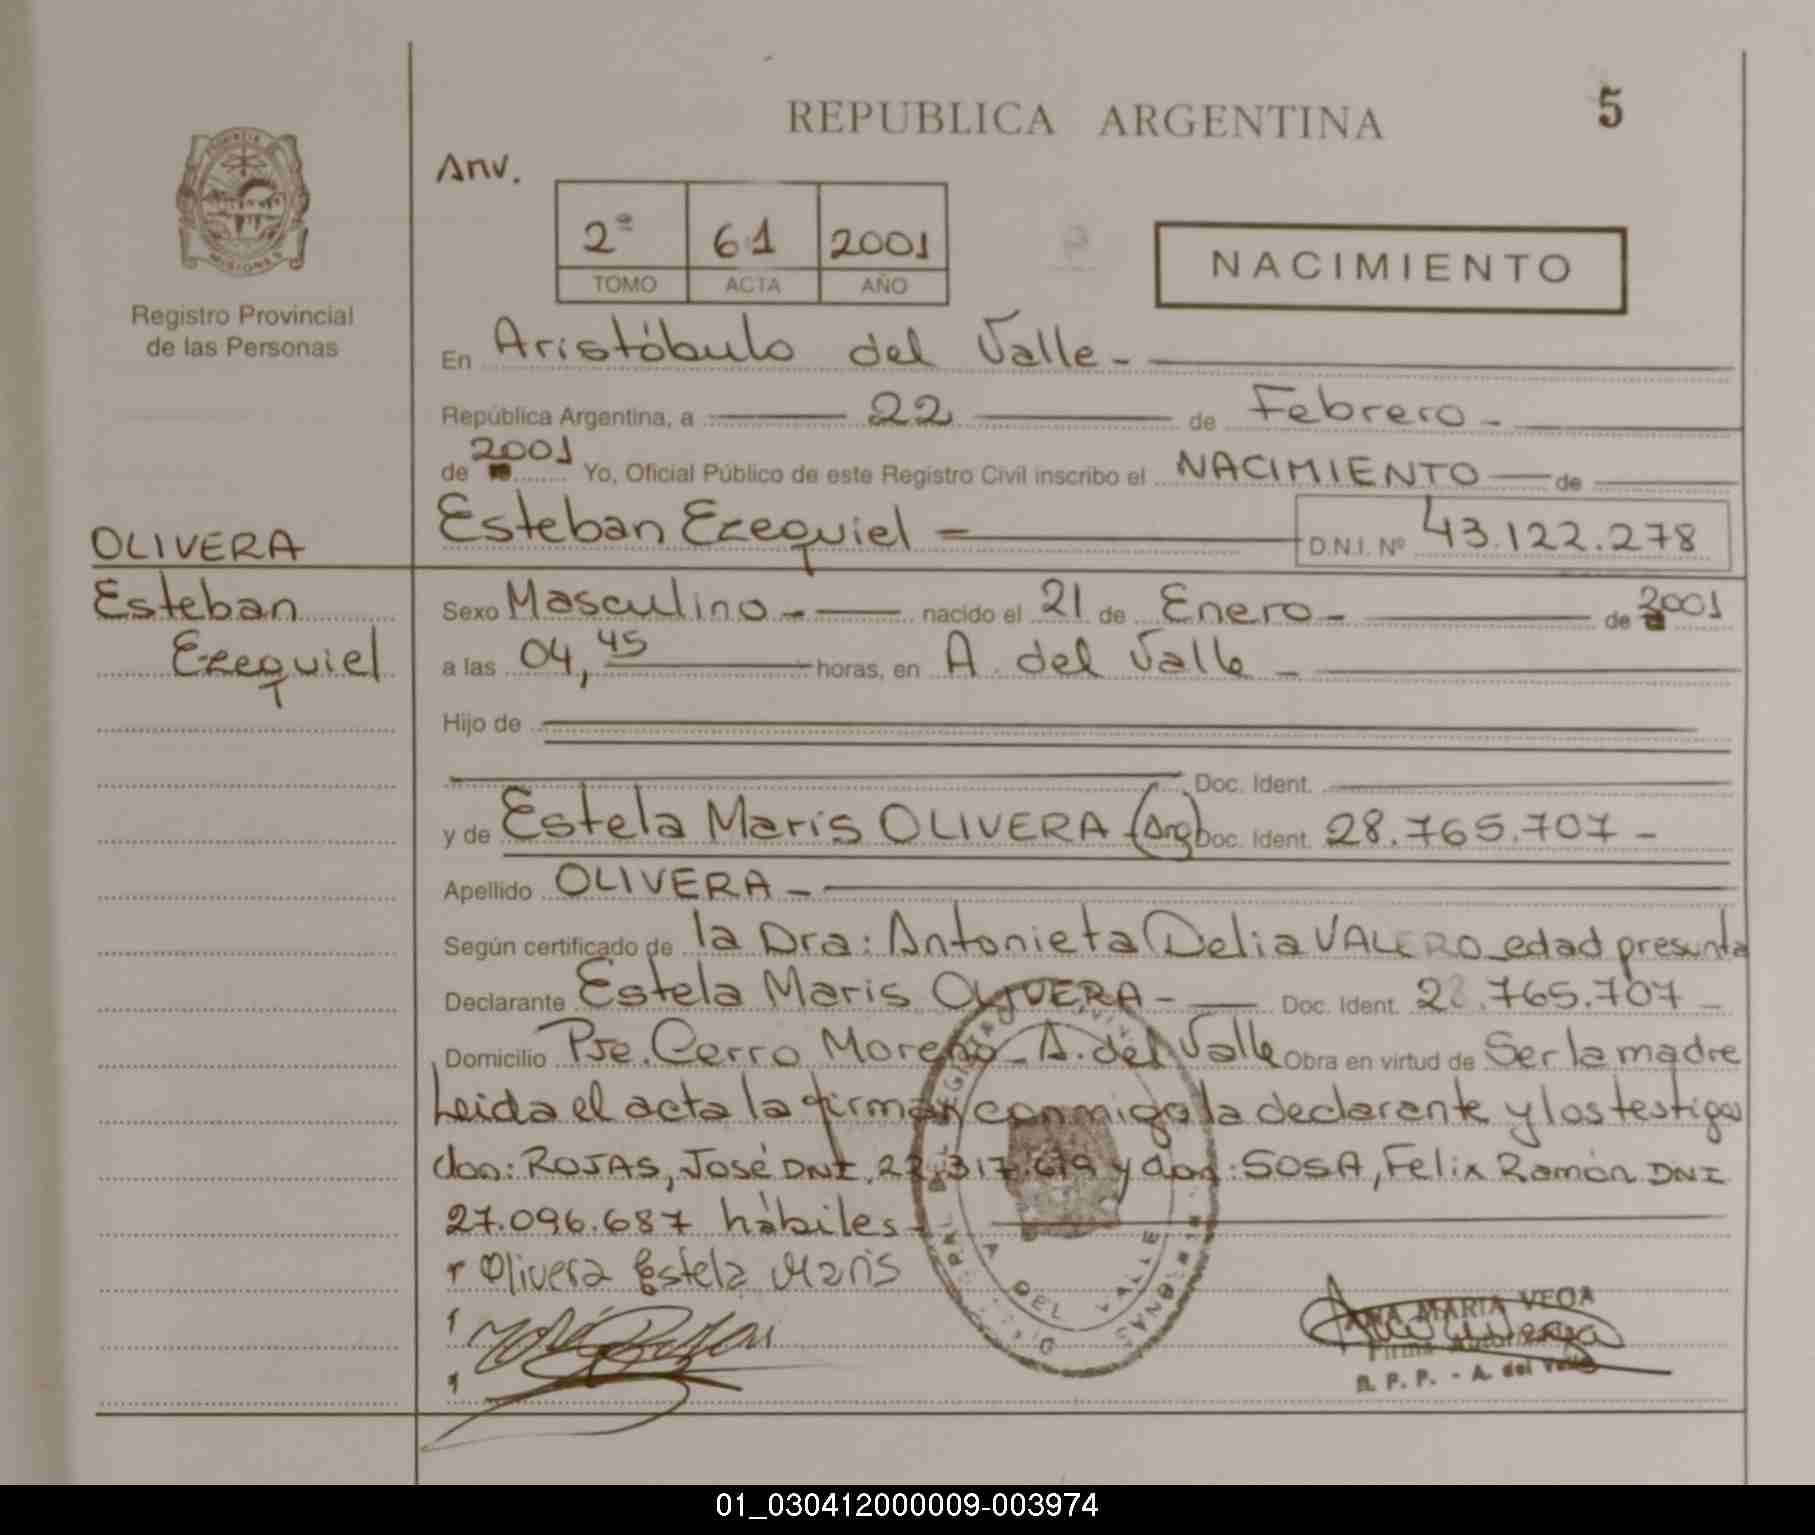 REPUBLICA ARGENTINA
5
PROVINCIA
MISIONES
Registro Provincial
de las Personas
Anv.
2º 61 2001
TOMO ACTA AÑO
NACIMIENTO
En Aristóbulo del Valle -
República Argentina, a 22 de Febrero -
de 2001 Yo, Oficial Público de este Registro Civil inscribo el NACIMIENTO de
Esteban Ezequiel - D.N.I. Nº 43.122.278
OLIVERA
Esteban
Ezequiel
Sexo Masculino - nacido el 21 de Enero - de 2001
a las 04,45 horas, en A. del Valle -
Hijo de
Doc. Ident.
y de Estela Maris OLIVERA (Arg) Doc. Ident. 28.765.707 -
Apellido OLIVERA -
Según certificado de la Dra: Antonieta Delia VALERO - edad presunta
Declarante Estela Maris OLIVERA - Doc. Ident. 28.765.707 -
Domicilio Pje. Cerro Moreno - A. del Valle Obra en virtud de Ser la madre
Leida el acta la firman conmigo la declarante y los testigos
don: ROJAS, José DNI. 22.317.619 y don: SOSA, Felix Ramón DNI
27.096.687 hábiles -
Olivera Estela Maris
José Rojas
A DEL VALLE
ANA MARIA VEGA
Firma Autorizada
R. P. P. - A. del Valle
01_030412000009-003974